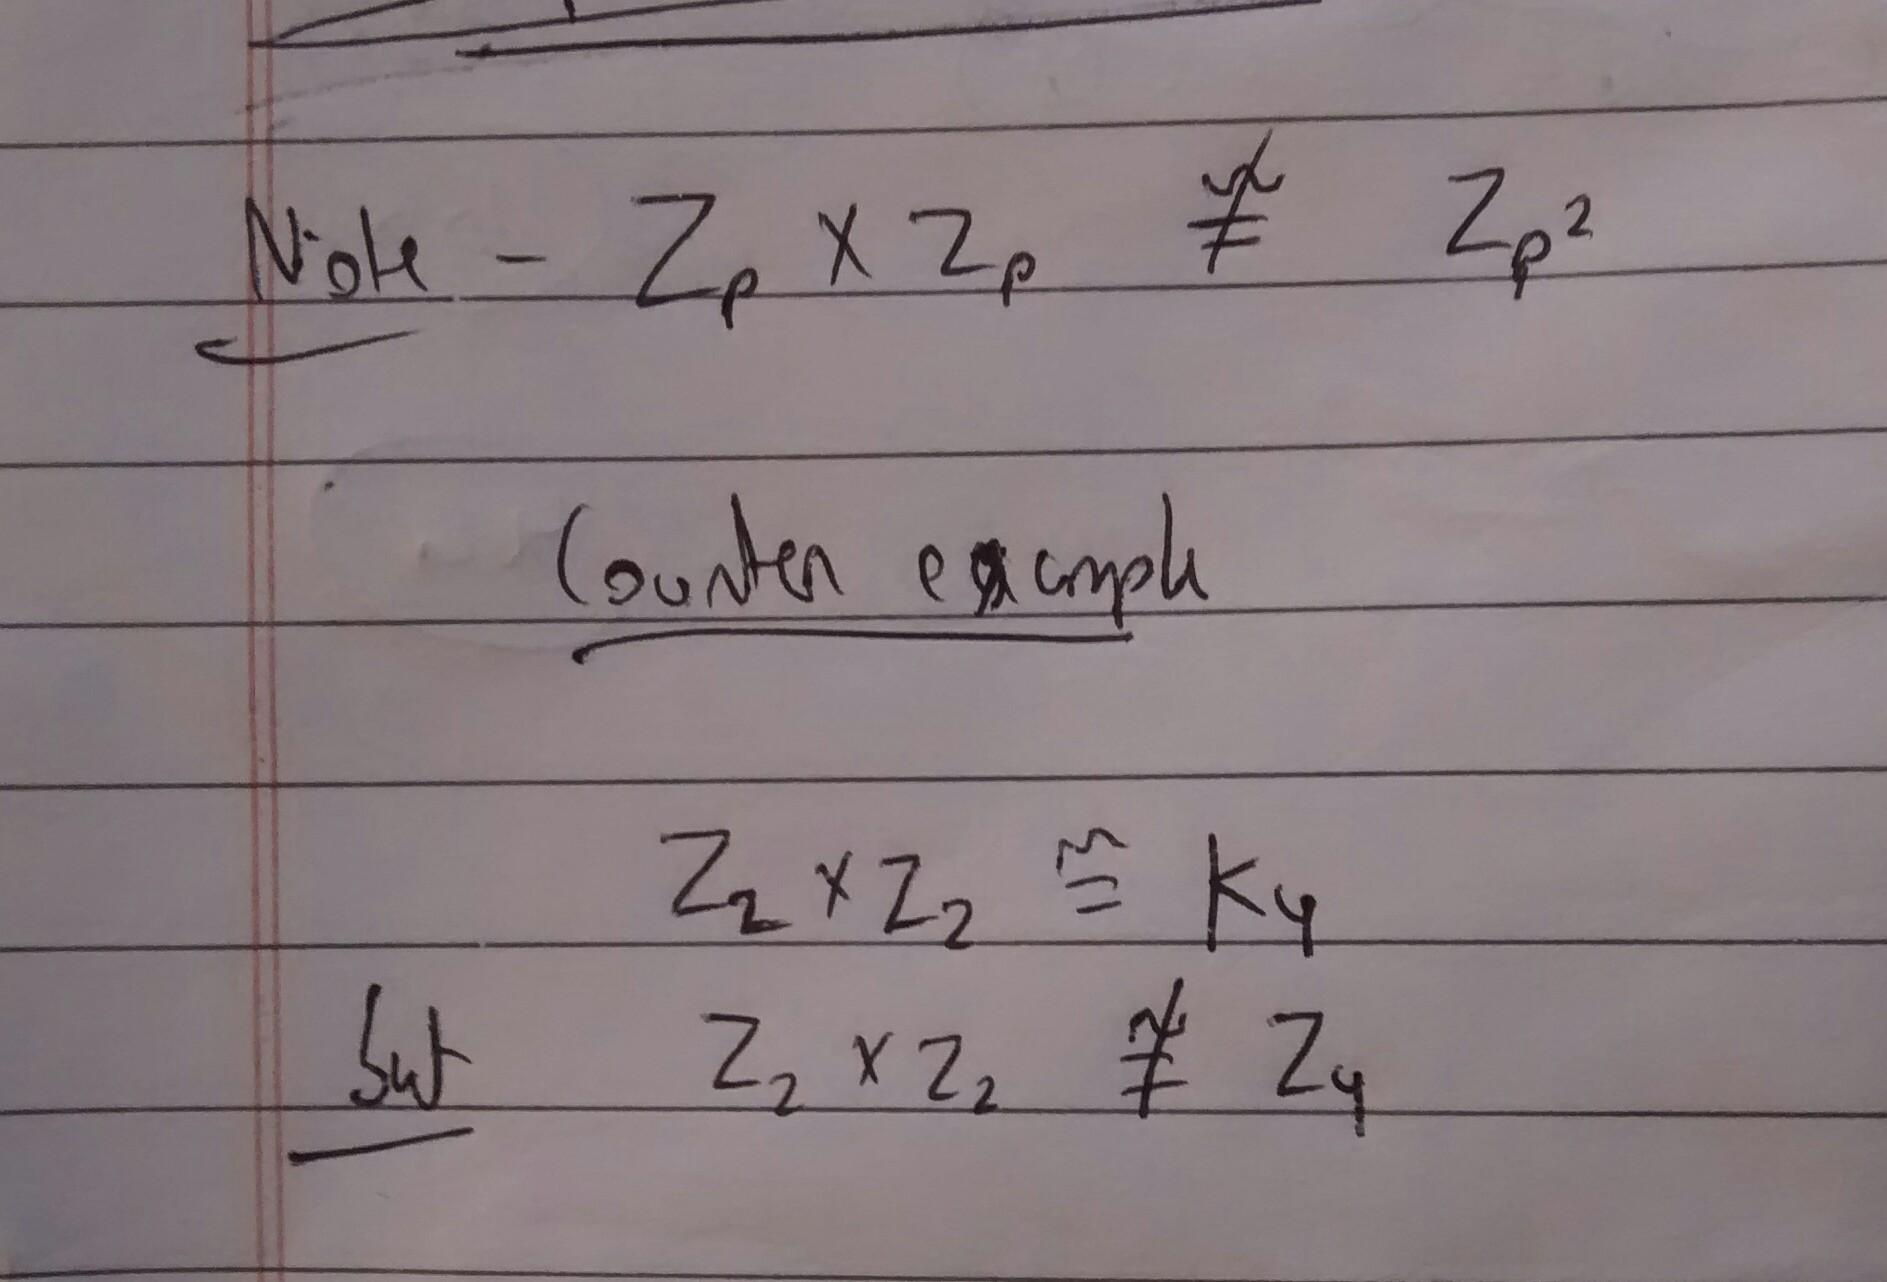 Note - Zp × Zp ≇ Zp²
Counter example
Z₂ × Z₂ ≅ K₄
but Z₂ × Z₂ ≇ Z₄